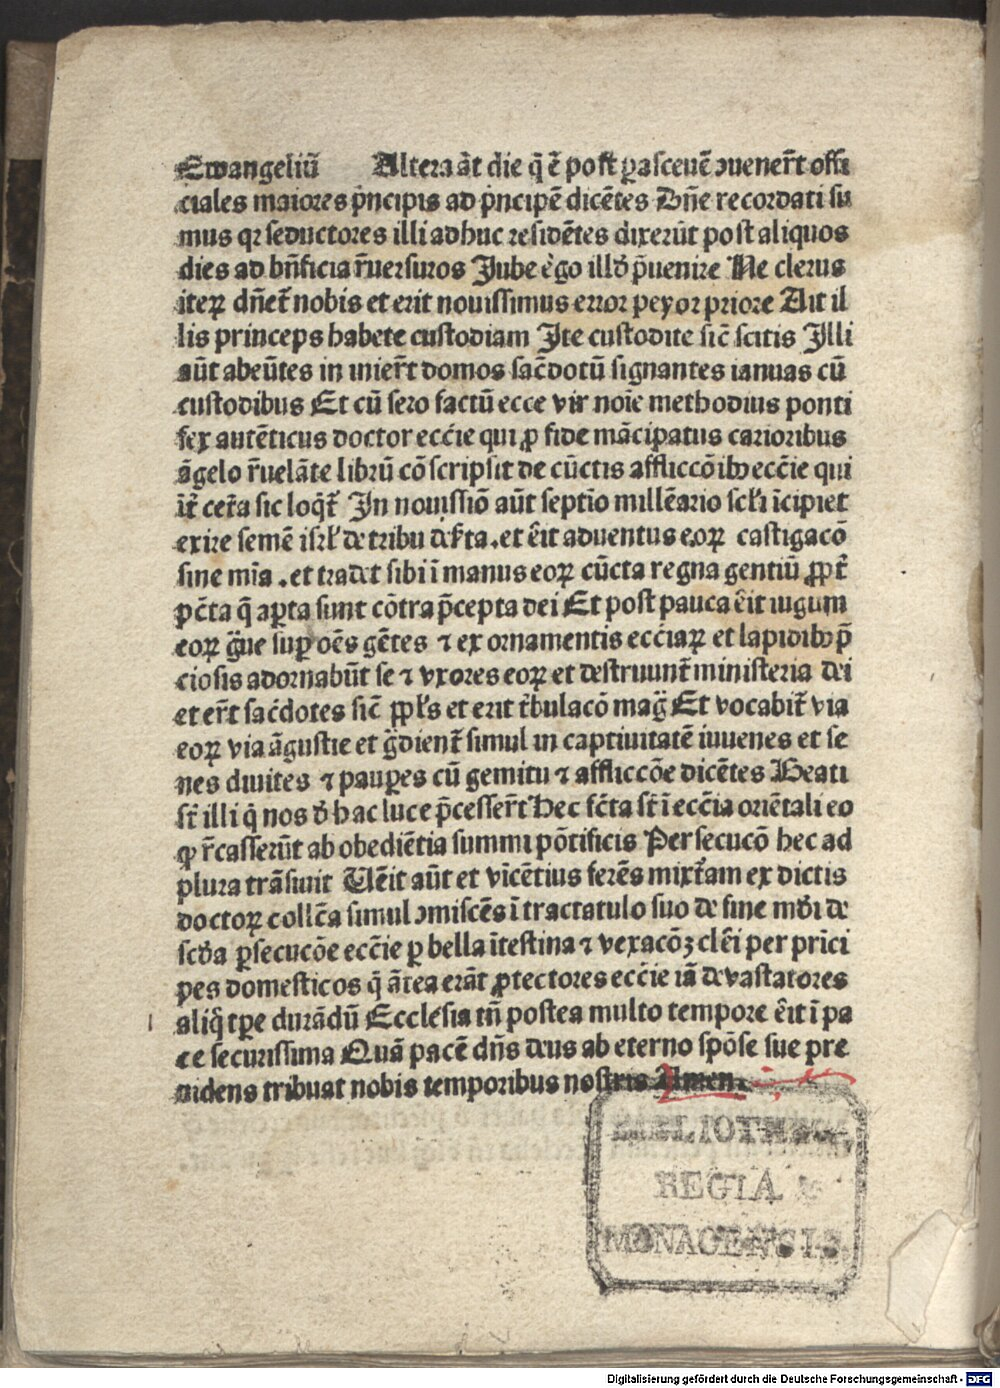 Ewangeliū Altera āt die q̄ ē post ꝑasceuē ↄuener̄t offi
ciales maiores p̄ncipis ad p̄ncipē dicētes Dn̄e recordati su
mus qꝛ seductores illi adhuc residētes dixerūt post aliquos
dies ad bn̄ficia r̄uersuros Jube ẽgo illđ p̄uenire Ne clerus
iteꝝ dn̄et̄ nobis et erit nouissimus error peyor priore Ait il
lis princeps habete custodiam Jte custodite sic̄ scitis Jlli
aūt abeūtes in inier̄t domos sac̄dotū signantes ianuas cū
custodibus Et cū sero factū ecce vir noīe methodius ponti
fex autēticus doctor ecc̄ie qui ꝓ fide mācipatus carioribus
āgelo r̄uelāte librū cōscripsit de cūctis affliccōibꝫ ecc̄ie qui
īt̄ cet̄a sic loq̄t̄ Jn nouissiō aūt septīo millēario scl̄i īcipiet
exire semē isrl̄ de tribu .et ēit aduentus eoꝝ castigacō
sine mīa .et tradet sibi ī manus eoꝝ cūcta regna gentiū ꝓpt̄
pc̄ta q̄ aꝑta sunt cōtra p̄cepta dei Et post pauca ēit iugum
eoꝝ ḡue suꝑ oēs gētes ⁊ ex ornamentis ecc̄iaꝝ et lapidibꝫ p̄
ciosis adornabūt se ⁊ vxores eoꝝ et destruunt̄ ministeria dei
et er̄t sac̄dotes sic̄ ppl̄s et erit t̄bulacō maḡ Et vocabit̄ via
eoꝝ via āgustie et ḡdient̄ simul in captiuitatē iuuenes et se
nes diuites ⁊ pauꝑes cū gemitu ⁊ affliccōe dicētes Beati
st̄ illi q̄ nos đ hac luce p̄cesser̄t Hec fc̄ta st̄ ī ecc̄ia oriētali eo
ꝙ r̄casserūt ab obediētia summi pōtificis Persecucō hec ad
plura trāsiuit Uēit aūt et vīcētius ferēs mixt̄am ex dictis
doctoꝝ collc̄a simul ↄmiscēs ī tractatulo suo de fine mđi de
scđa ꝑsecucōe ecc̄ie ꝑ bella ītestina ⁊ vexacōꝫ clēi per prīci
pes domesticos q̄ ātea erāt ꝓtectores ecc̄ie iā deuastatores
aliq̄ tꝑe durādū Ecclesia tn̄ postea multo tempore ēit ī pa
ce securissima Quā pacē dn̄s deus ab eterno spōse sue pre
uidens tribuat nobis temporibus nostris Amen.
BIBLIOTHECA
REGIA
MONACENSIS.
Digitalisierung gefördert durch die Deutsche Forschungsgemeinschaft - DFG